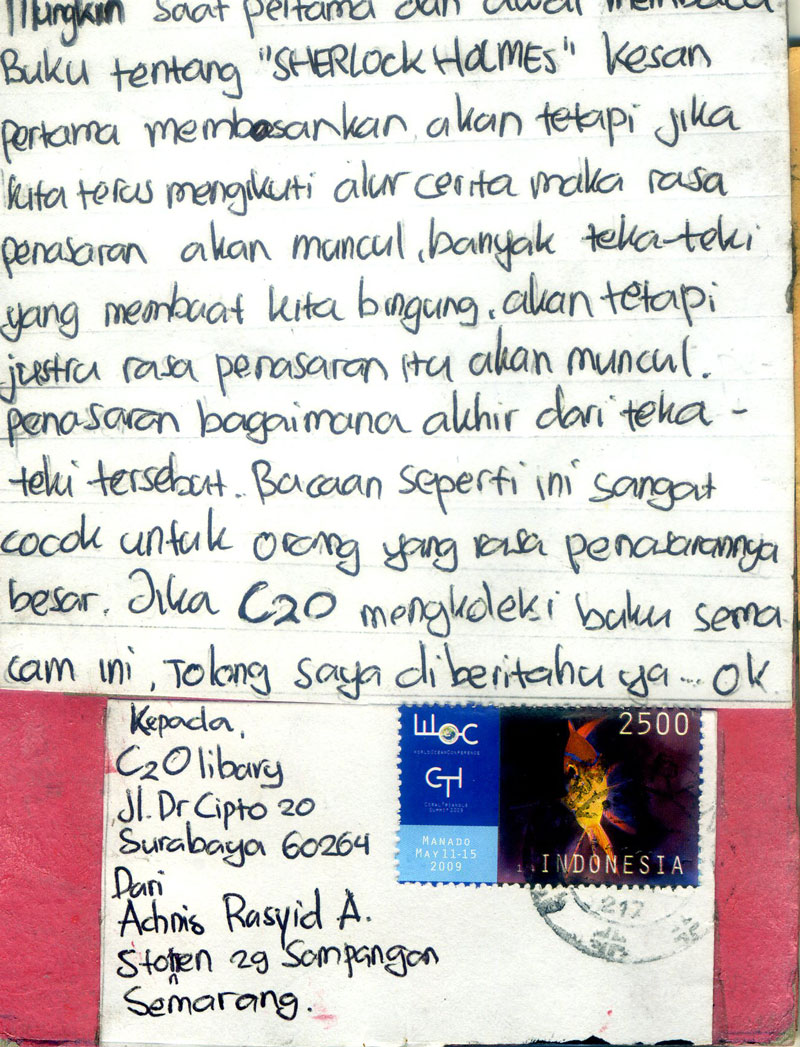 Mungkin saat pertama dan awal membaca
Buku tentang "SHERLOCK HOLMES" kesan
pertama membosankan, akan tetapi jika
kita terus mengikuti alur cerita maka rasa
penasaran akan muncul, banyak teka-teki
yang membuat kita bingung, akan tetapi
justru rasa penasaran itu akan muncul.
penasaran bagaimana akhir dari teka-
teki tersebut. Bacaan seperti ini sangat
cocok untuk orang yang rasa penasarannya
besar. Jika C2O mengkoleksi buku sema
cam ini, Tolong saya diberitahu ya... OK
Kepada,
C2O libary
Jl. Dr Cipto 20
Surabaya 60264
Dari
Achnis Rasyid A.
Stonen 29 Sampangan
Semarang.
WOC
WORLD OCEAN CONFERENCE
CTI
CORAL TRIANGLE
SUMMIT 2009
MANADO
MAY 11-15
2009
2500
INDONESIA
217